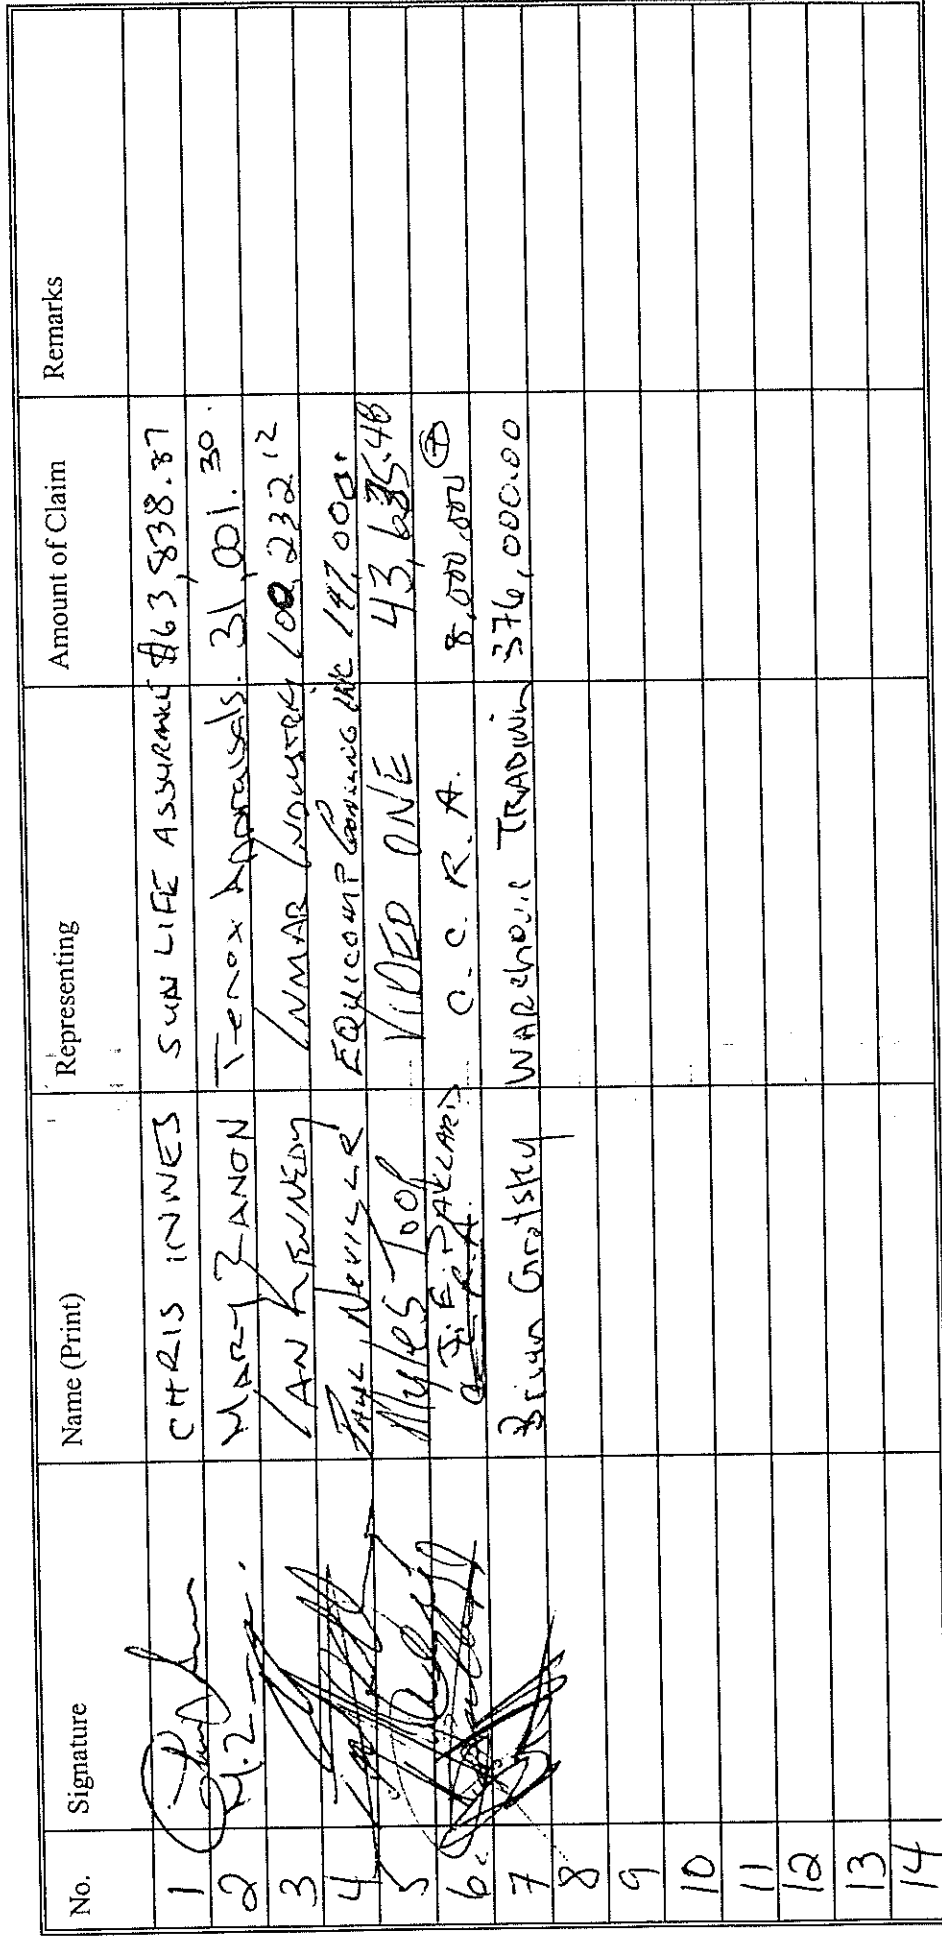 No. Signature Name (Print) Representing Amount of Claim Remarks
1 CHRIS INNES SUN LIFE ASSURANCE $63,838.37
2 MARY ZANON Tenox Appraisals. 31,001.30.
3 IAN KENNEDY INMAR INDUSTRY 100,232 12
4 NEVILLE EQUICOMP INC 147,000.
5 Myles Tool VIDEO ONE 43,635.48
6. C. C. R. A. 8,000,000 +
7 Brian Grotsky WAREhouse TRADING 376,000.00
8
9
10
11
12
13
14